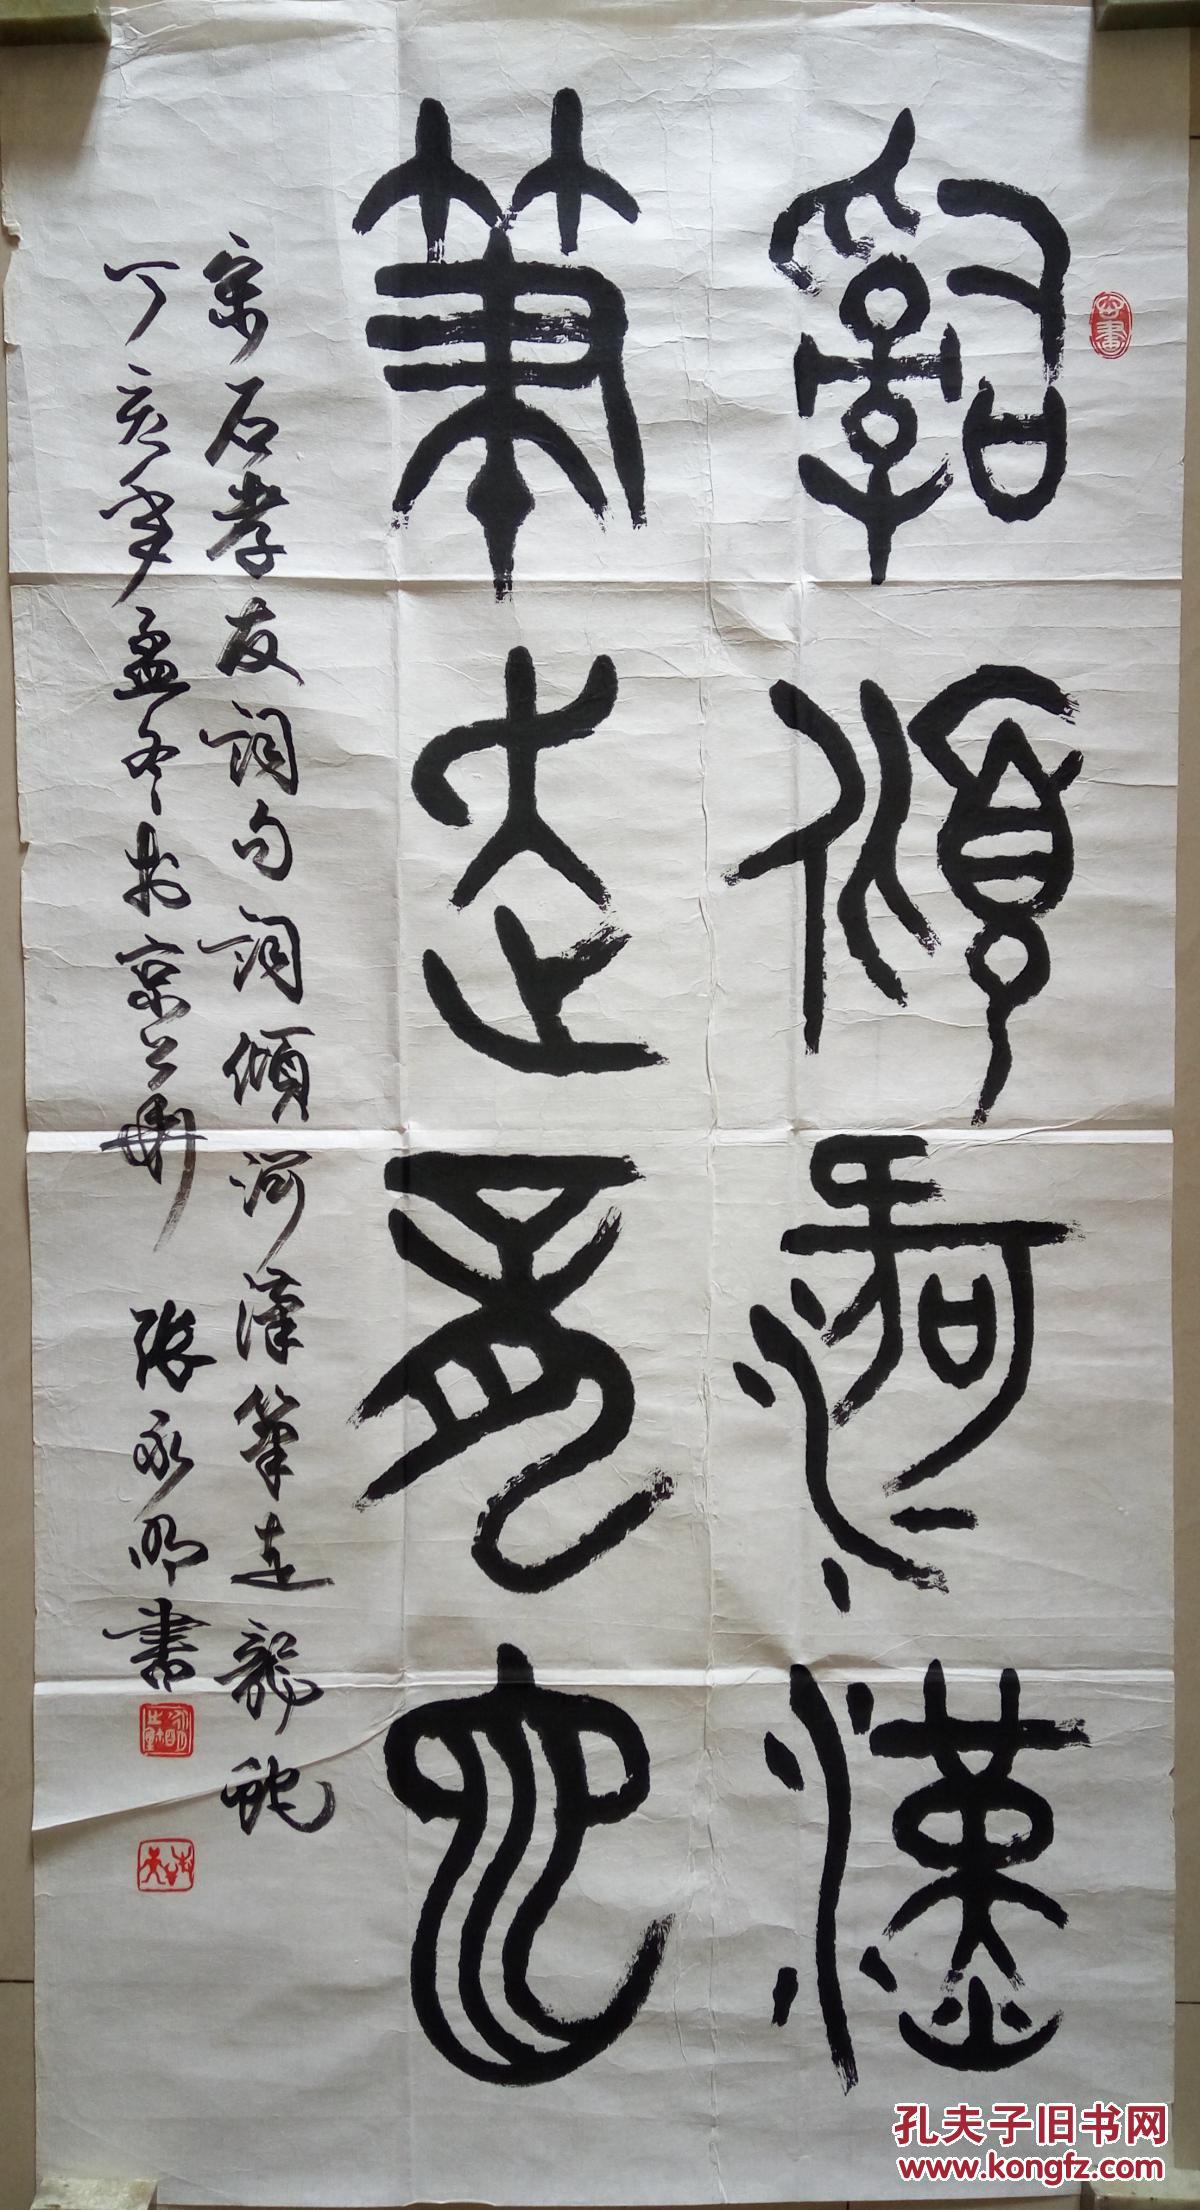 詞傾河漢
筆走龍蛇
宋石孝友詞句詞傾河漢筆走龍蛇
丁亥年孟冬於京華 張永明書
孔夫子旧书网
www.kongfz.com